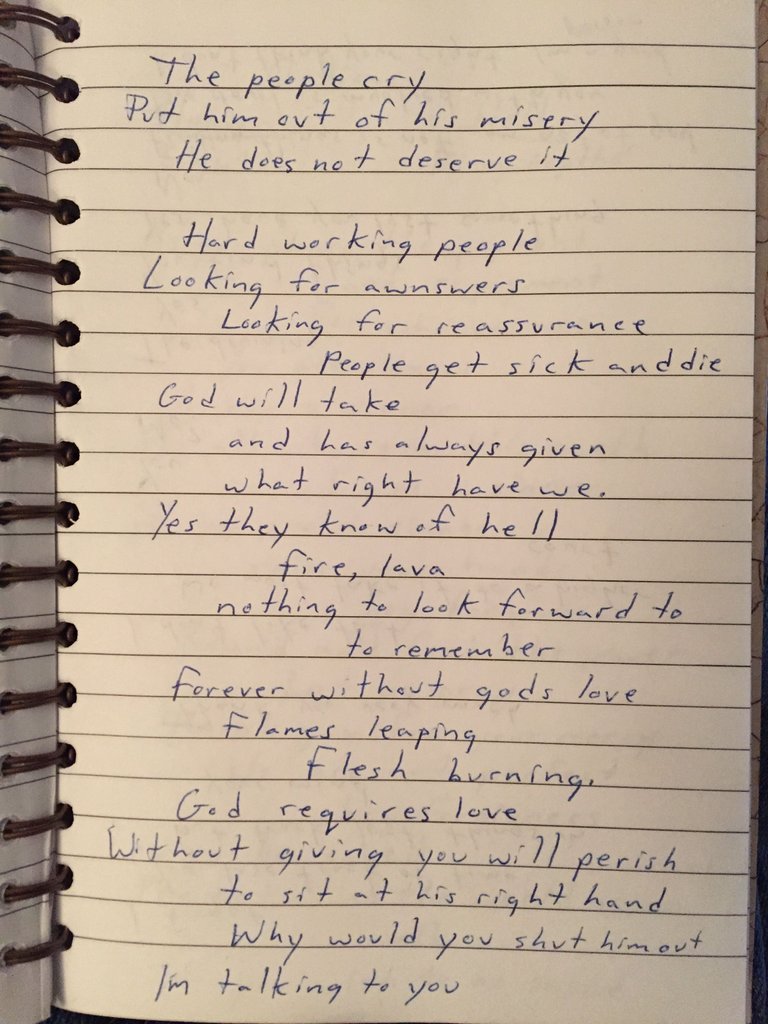 The people cry
Put him out of his misery
He does not deserve it
Hard working people
Looking for awnswers
Looking for reassurance
People get sick and die
God will take
and has always given
what right have we.
Yes they know of hell
fire, lava
nothing to look forward to
to remember
Forever without gods love
Flames leaping
Flesh burning.
God requires love
Without giving you will perish
to sit at his right hand
Why would you shut him out
I'm talking to you